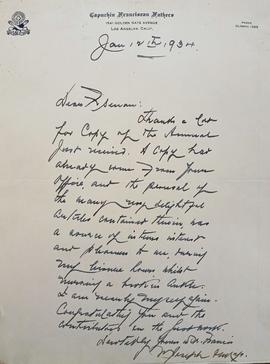 Capuchin Franciscan Fathers
1541 Golden Gate Avenue
Los Angeles, Calif.
Phone
Olympia 1255
Jan 12 1934.
Dear Fr Senan:
Thanks a lot
for Copy of the Annual
just received. A Copy had
already come from your
Office, and the perusal of
the many very delightful
articles contained therein was
a source of intense interest
and pleasure to me during
my leisure hours whilst
nursing a broken ankle.
I am nearly myself again.
Congratulating you and the
Contributors on the
Devotedly Yours in St. Francis
Fr Joseph